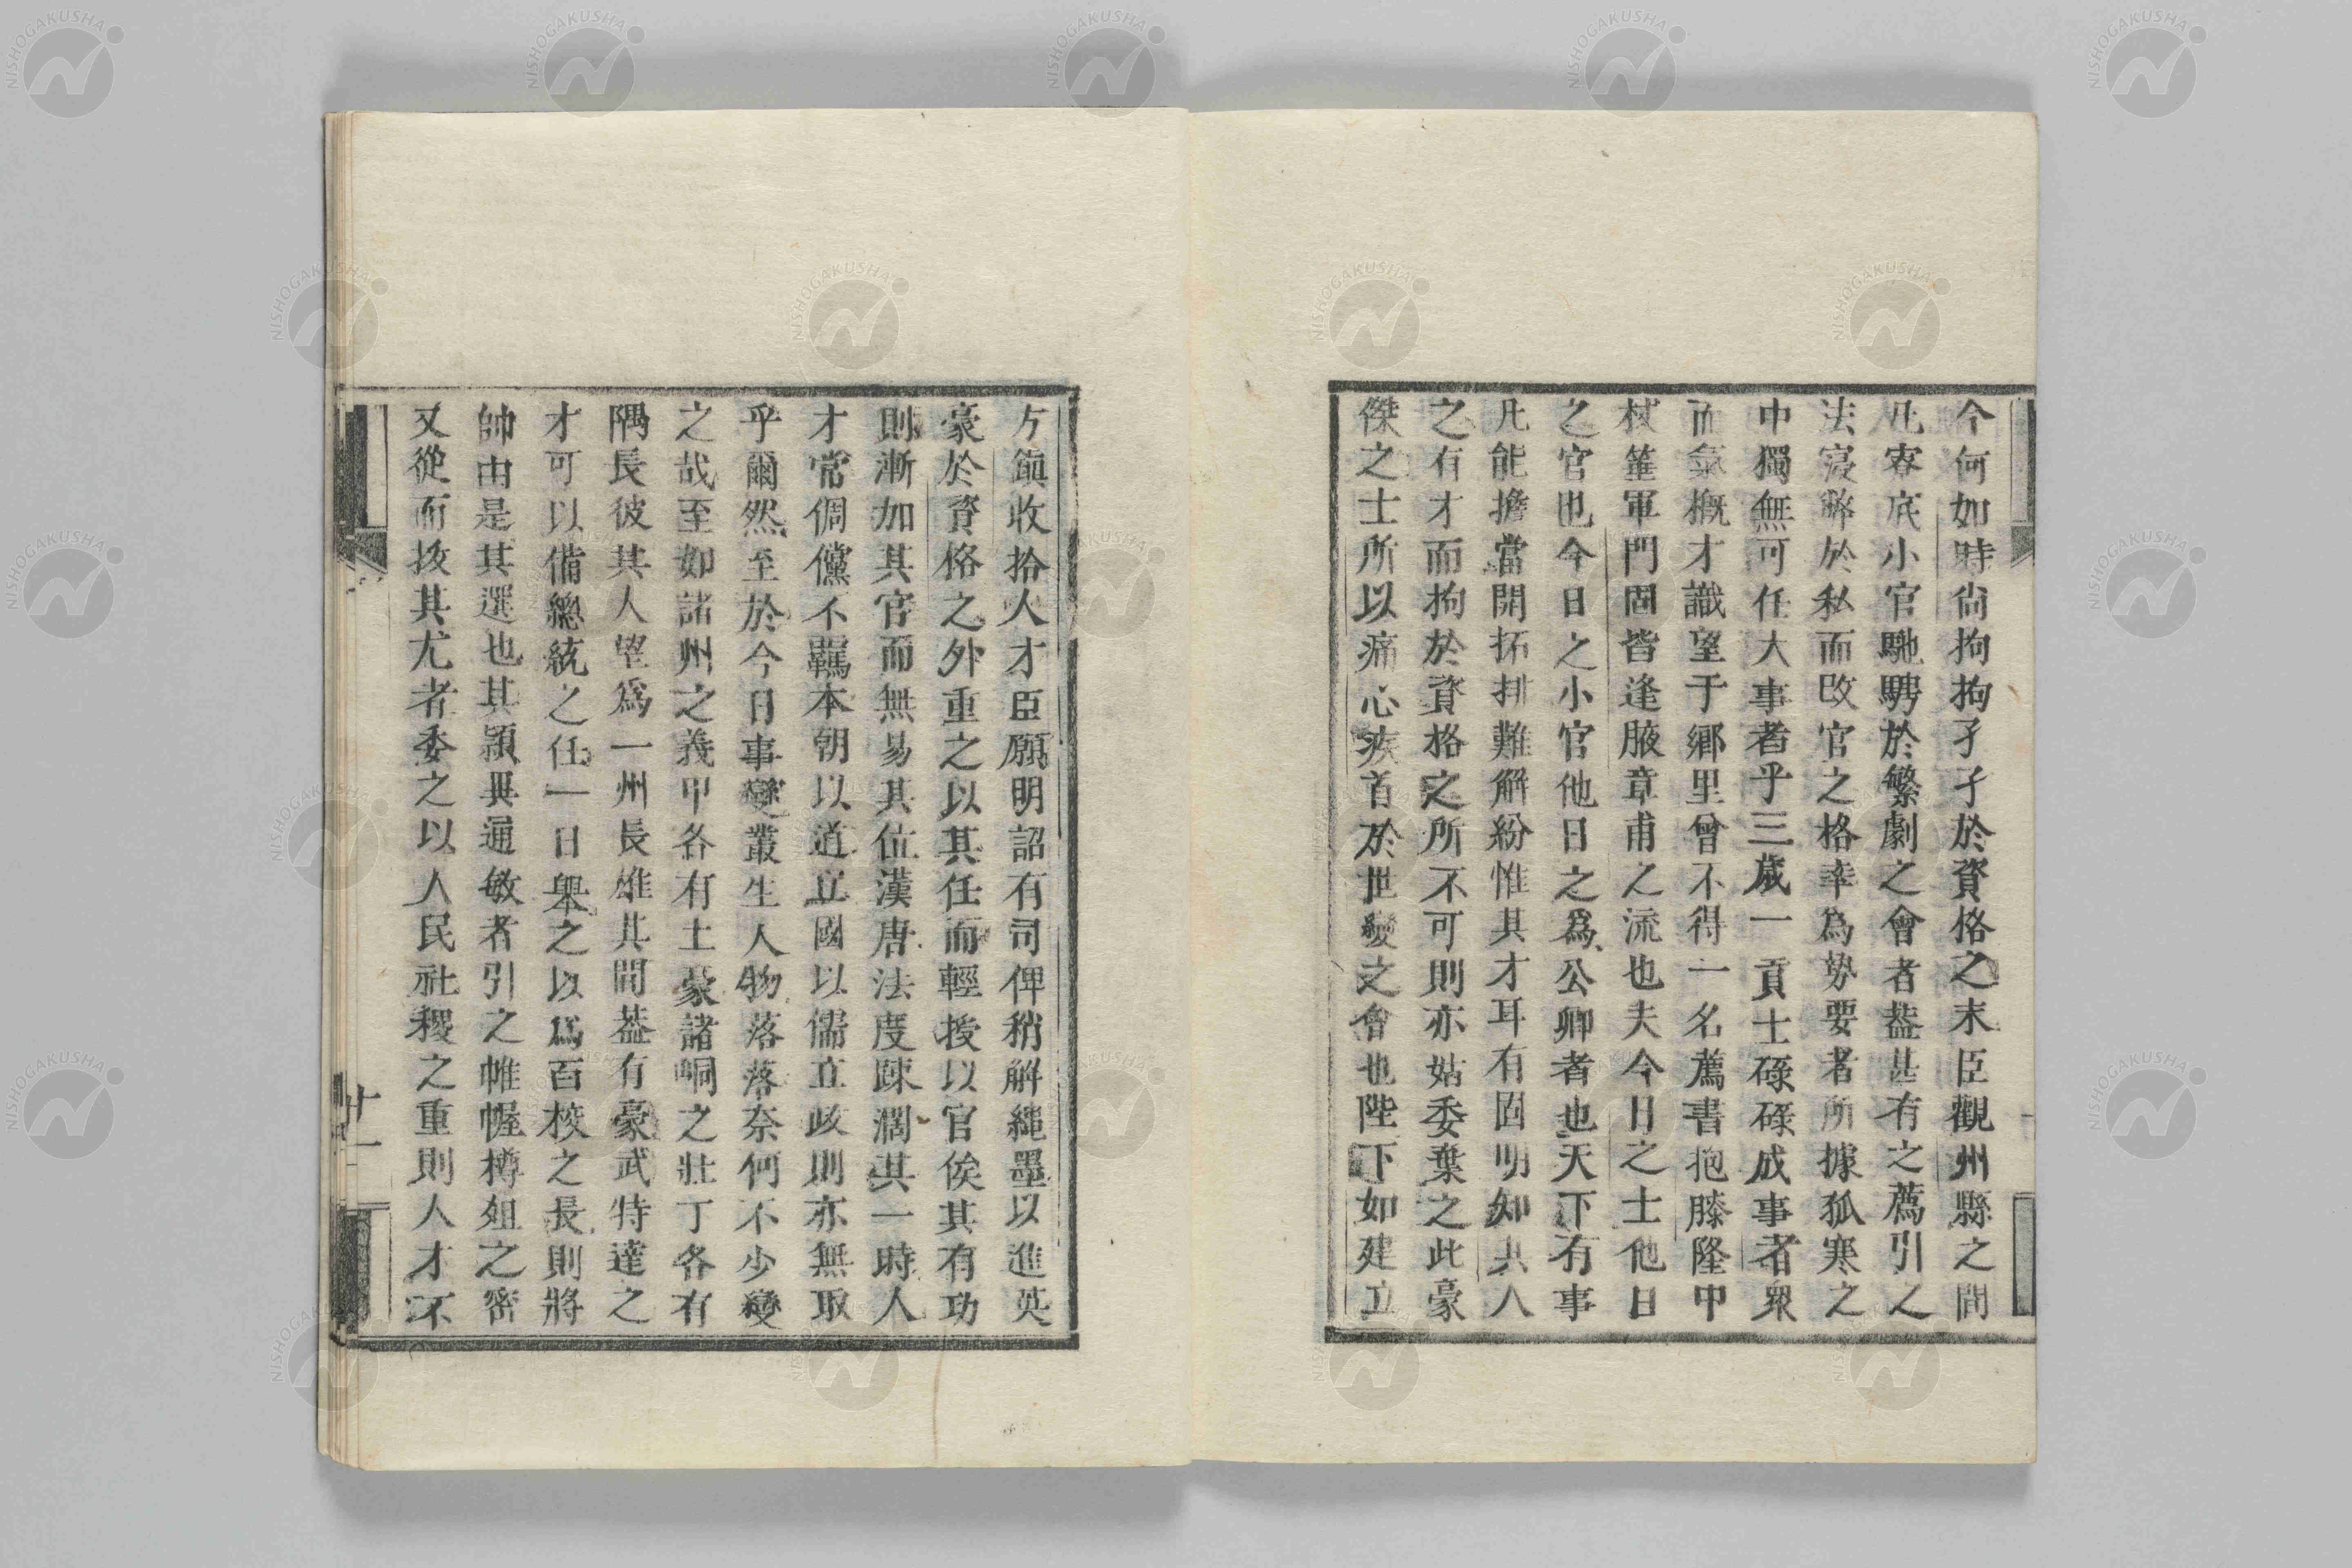 今何如時尚拘拘孑孑於資格之末臣觀州縣之間
凡寮底小官馳騁於繁劇之會者葢甚有之薦引之
法寖弊於私而改官之格率為勢要者所據孤寒之
中獨無可任大事者乎三歲一貢士碌碌成事者衆
而氣槩才識望于鄉里曾不得一名薦書抱膝隆中
杖箠軍門固皆逢腋章甫之流也夫今日之士他日
之官也今日之小官他日之爲公卿者也天下有事
凡能擔當開拓排難解紛惟其才耳有固明知其人
之有才而拘於資格之所不可則亦姑委棄之此豪
傑之士所以痛心疾首於世變之會也陛下如建立
方鎮收拾人才臣願明詔有司俾稍解繩墨以進英
豪於資格之外重之以其任而輕授以官俟其有功
則漸加其官而無易其位漢唐法度踈濶其一時人
才常倜儻不羈本朝以道立國以儒立政則亦無取
乎爾然至於今日事變叢生人物落落奈何不少變
之哉至如諸州之義甲各有土豪諸峒之壯丁各有
隅長彼其人望爲一州長雄其間葢有豪武特達之
才可以備總統之任一日舉之以爲百校之長則將
帥由是其選也其穎異通敏者引之帷幄樽俎之密
又從而拔其尤者委之以人民社稷之重則人才不
十一
NISHOGAKUSHA